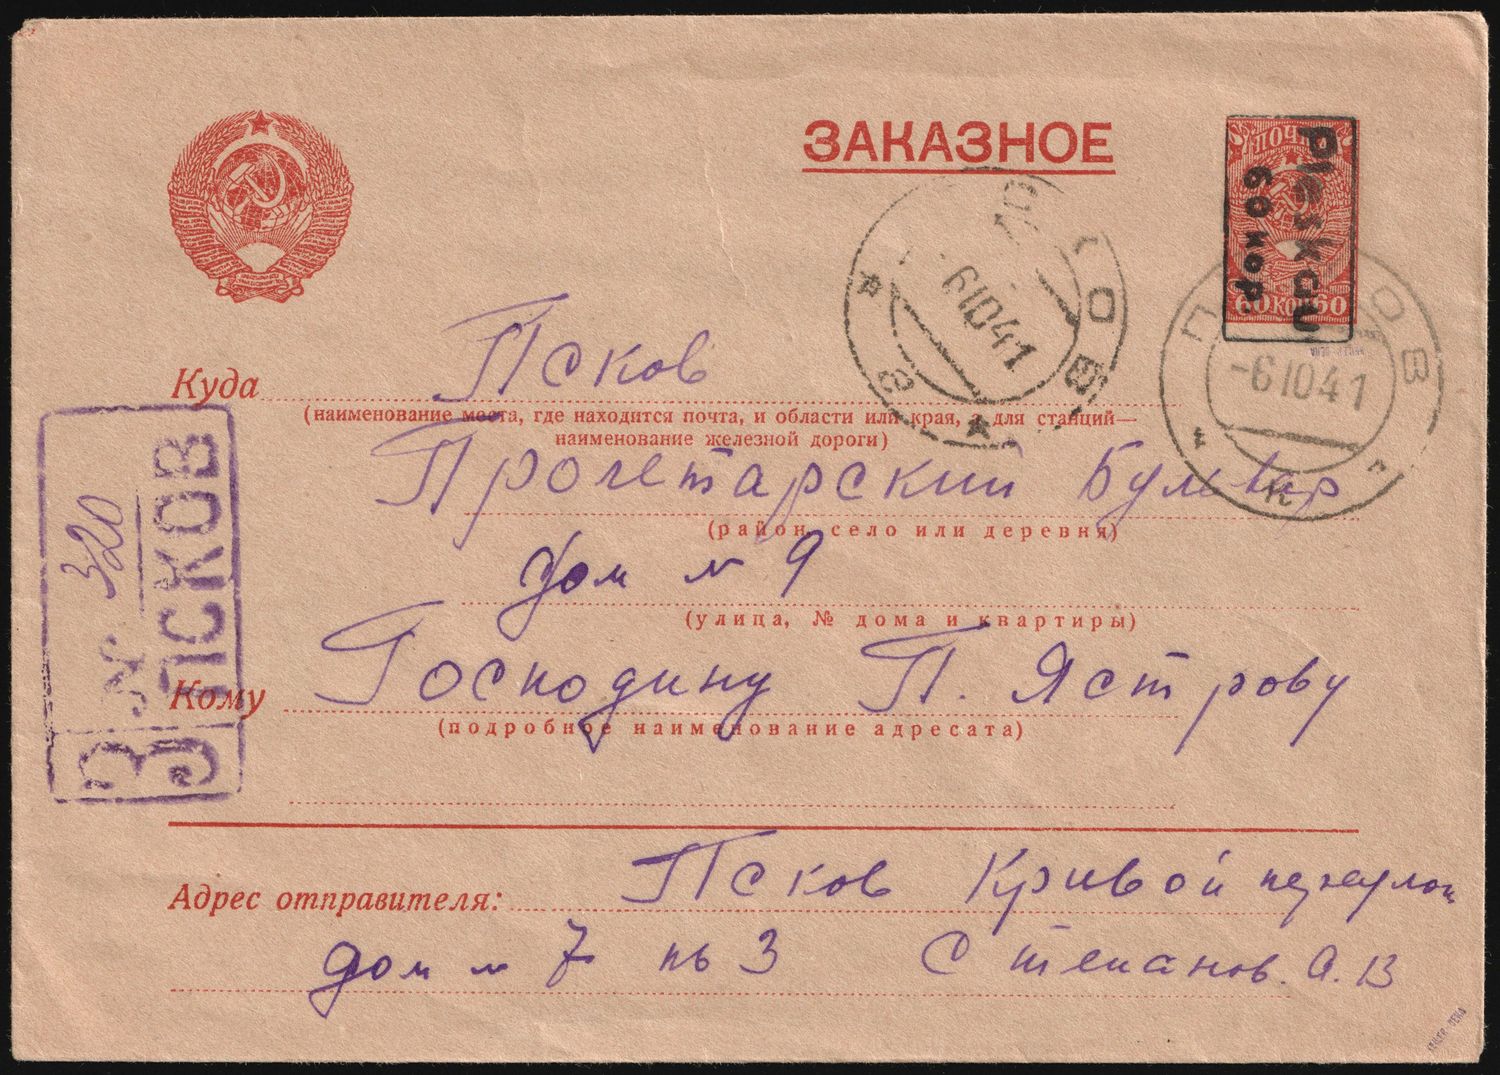 ЗАКАЗНОЕ
ПОЧТА
60 КОП 60
Pleskau
60 кор.
ПСКОВ
-6 10 41
ПСКОВ
-6 10 41
Куда Псков
(наименование места, где находится почта, и области или края, а для станций—
наименование железной дороги)
Пролетарский Бульвар
(район, село или деревня)
дом № 9
(улица, № дома и квартиры)
Кому Господину П. Ястрову
(подробное наименование адресата)
З ПСКОВ
№ 320
Адрес отправителя: Псков Кривой переулок
дом № 7 кв 3 Степанов. А. В